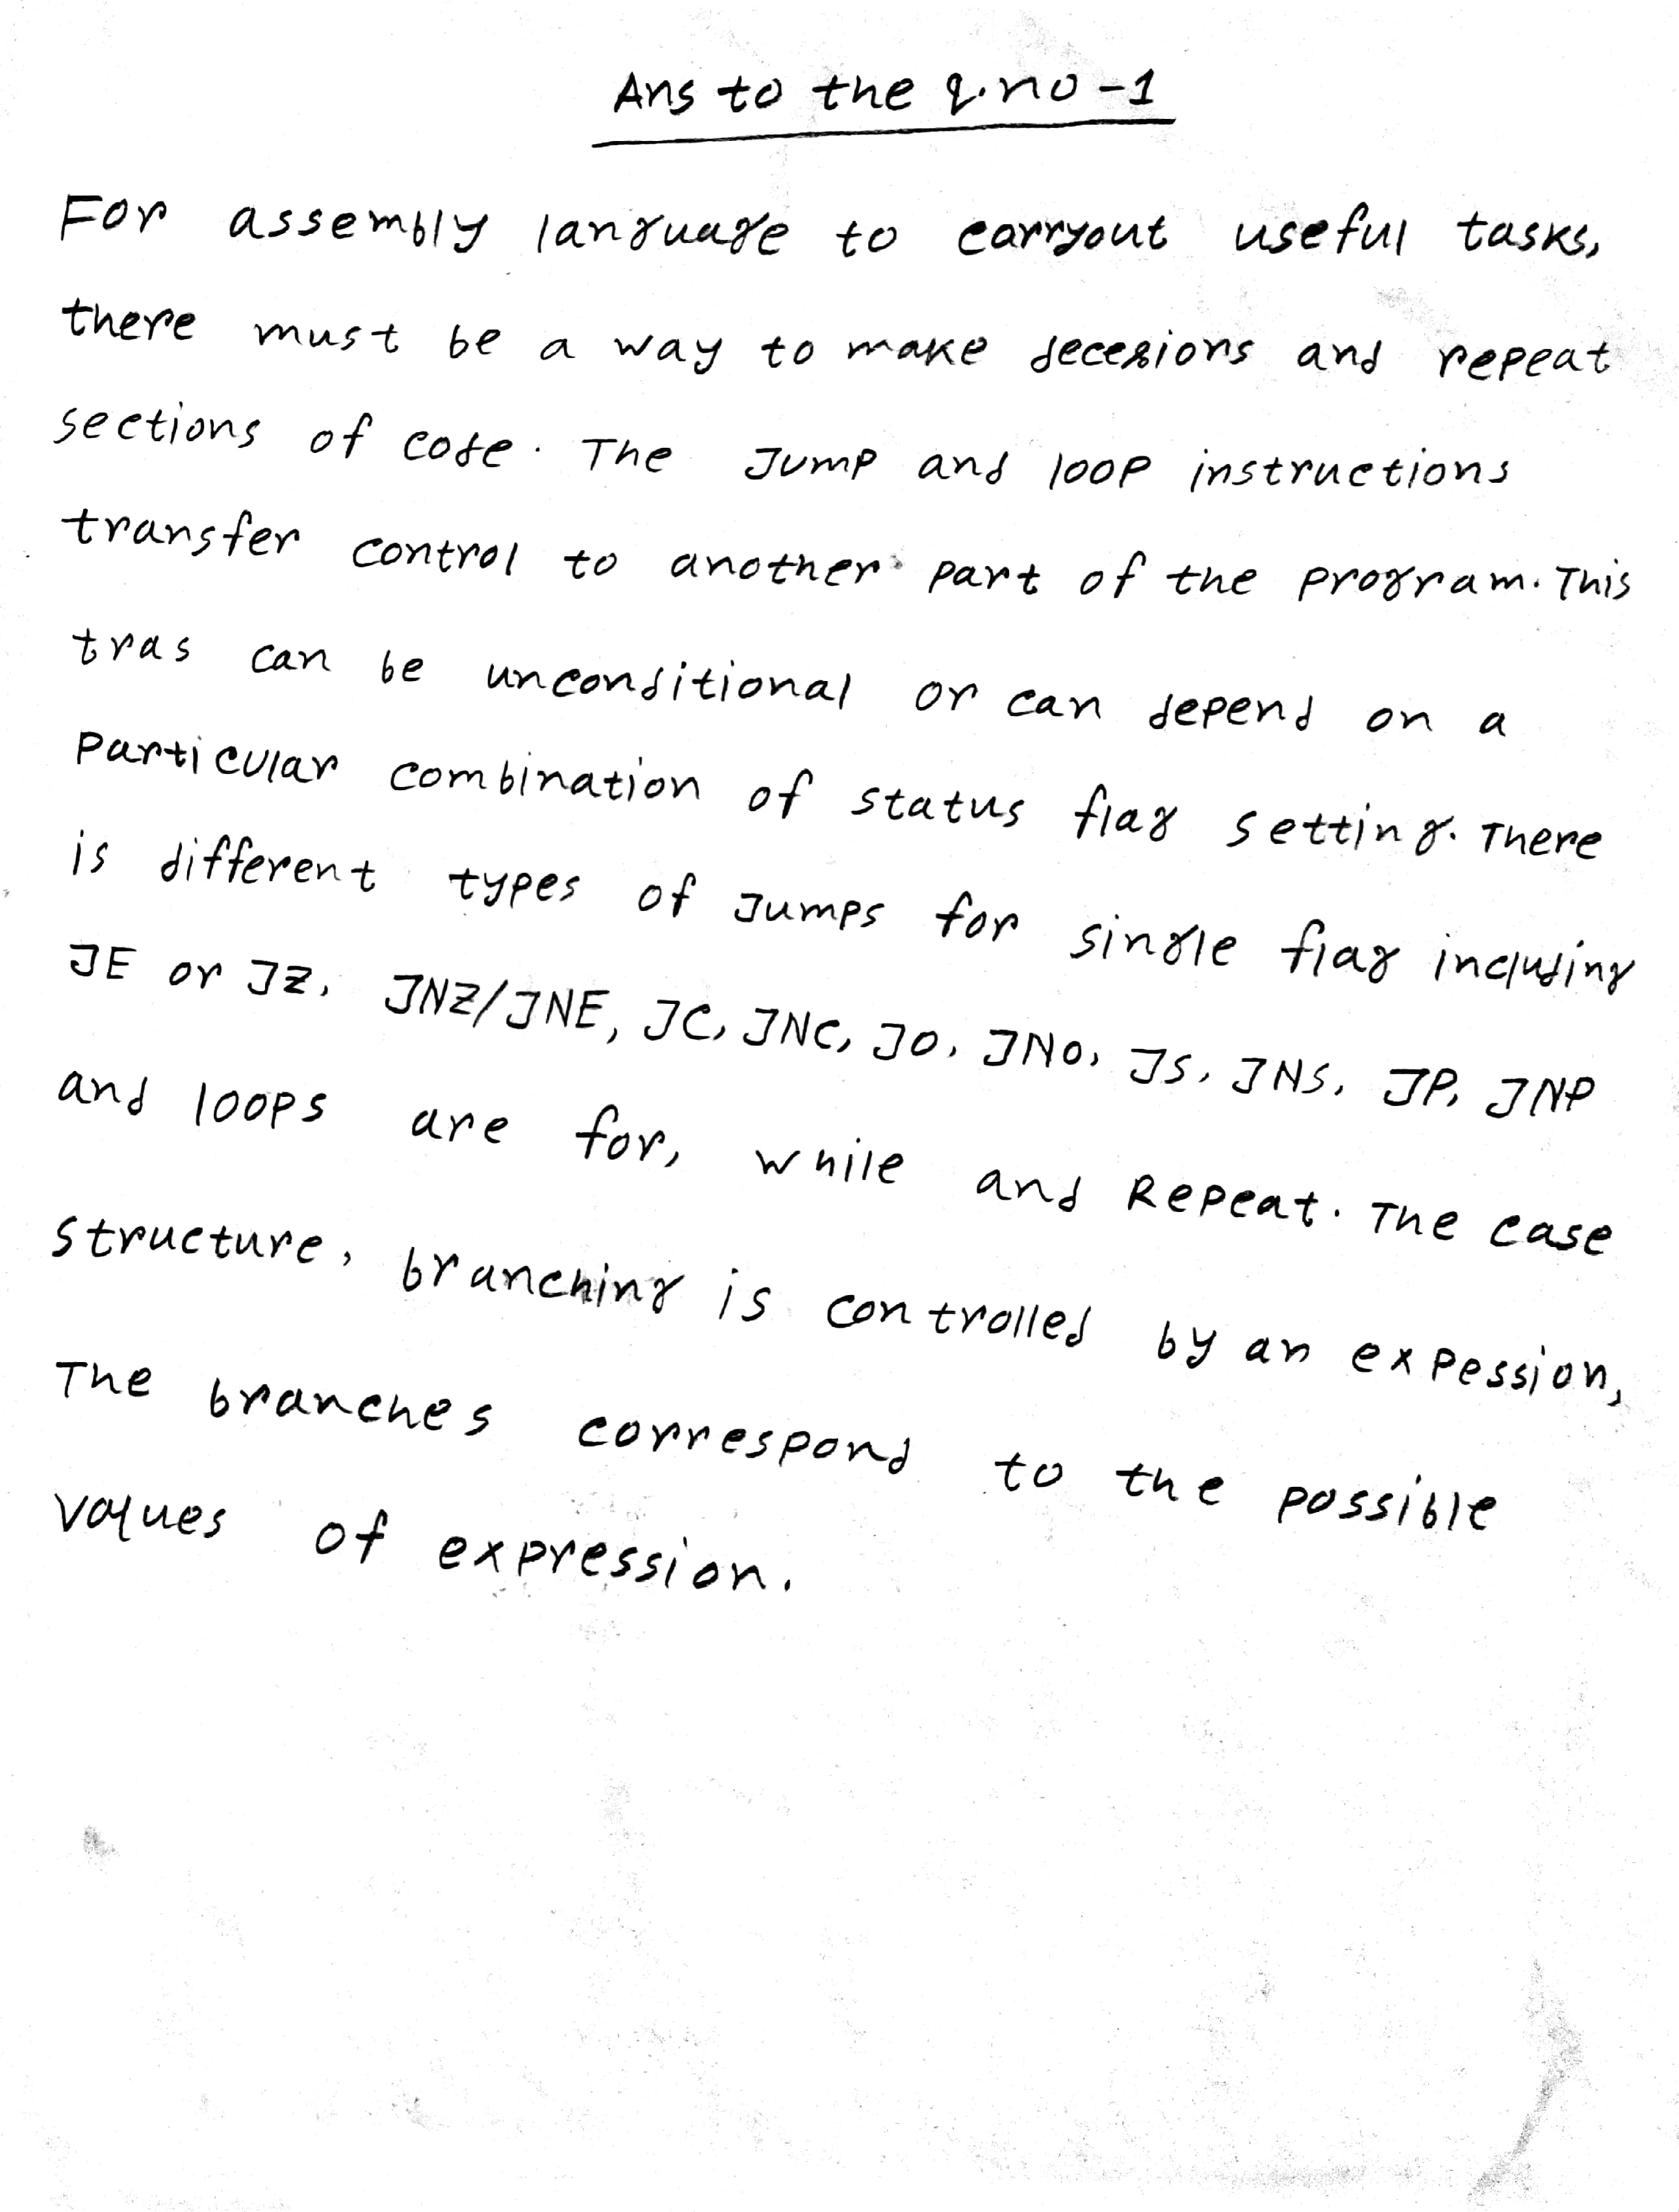 Ans to the q.no-1
For assembly language to carryout useful tasks,
there must be a way to make decesions and repeat
sections of code. The Jump and loop instructions
transfer control to another part of the program. This
tras can be unconditional or can depend on a
particular combination of status flag setting. There
is different types of Jumps for single flag including
JE or JZ, JNZ/JNE, JC, JNC, JO, JNO, JS, JNS, JP, JNP
and loops are for, while and Repeat. The case
structure, branching is controlled by an expession,
The branches correspond to the possible
values of expression.